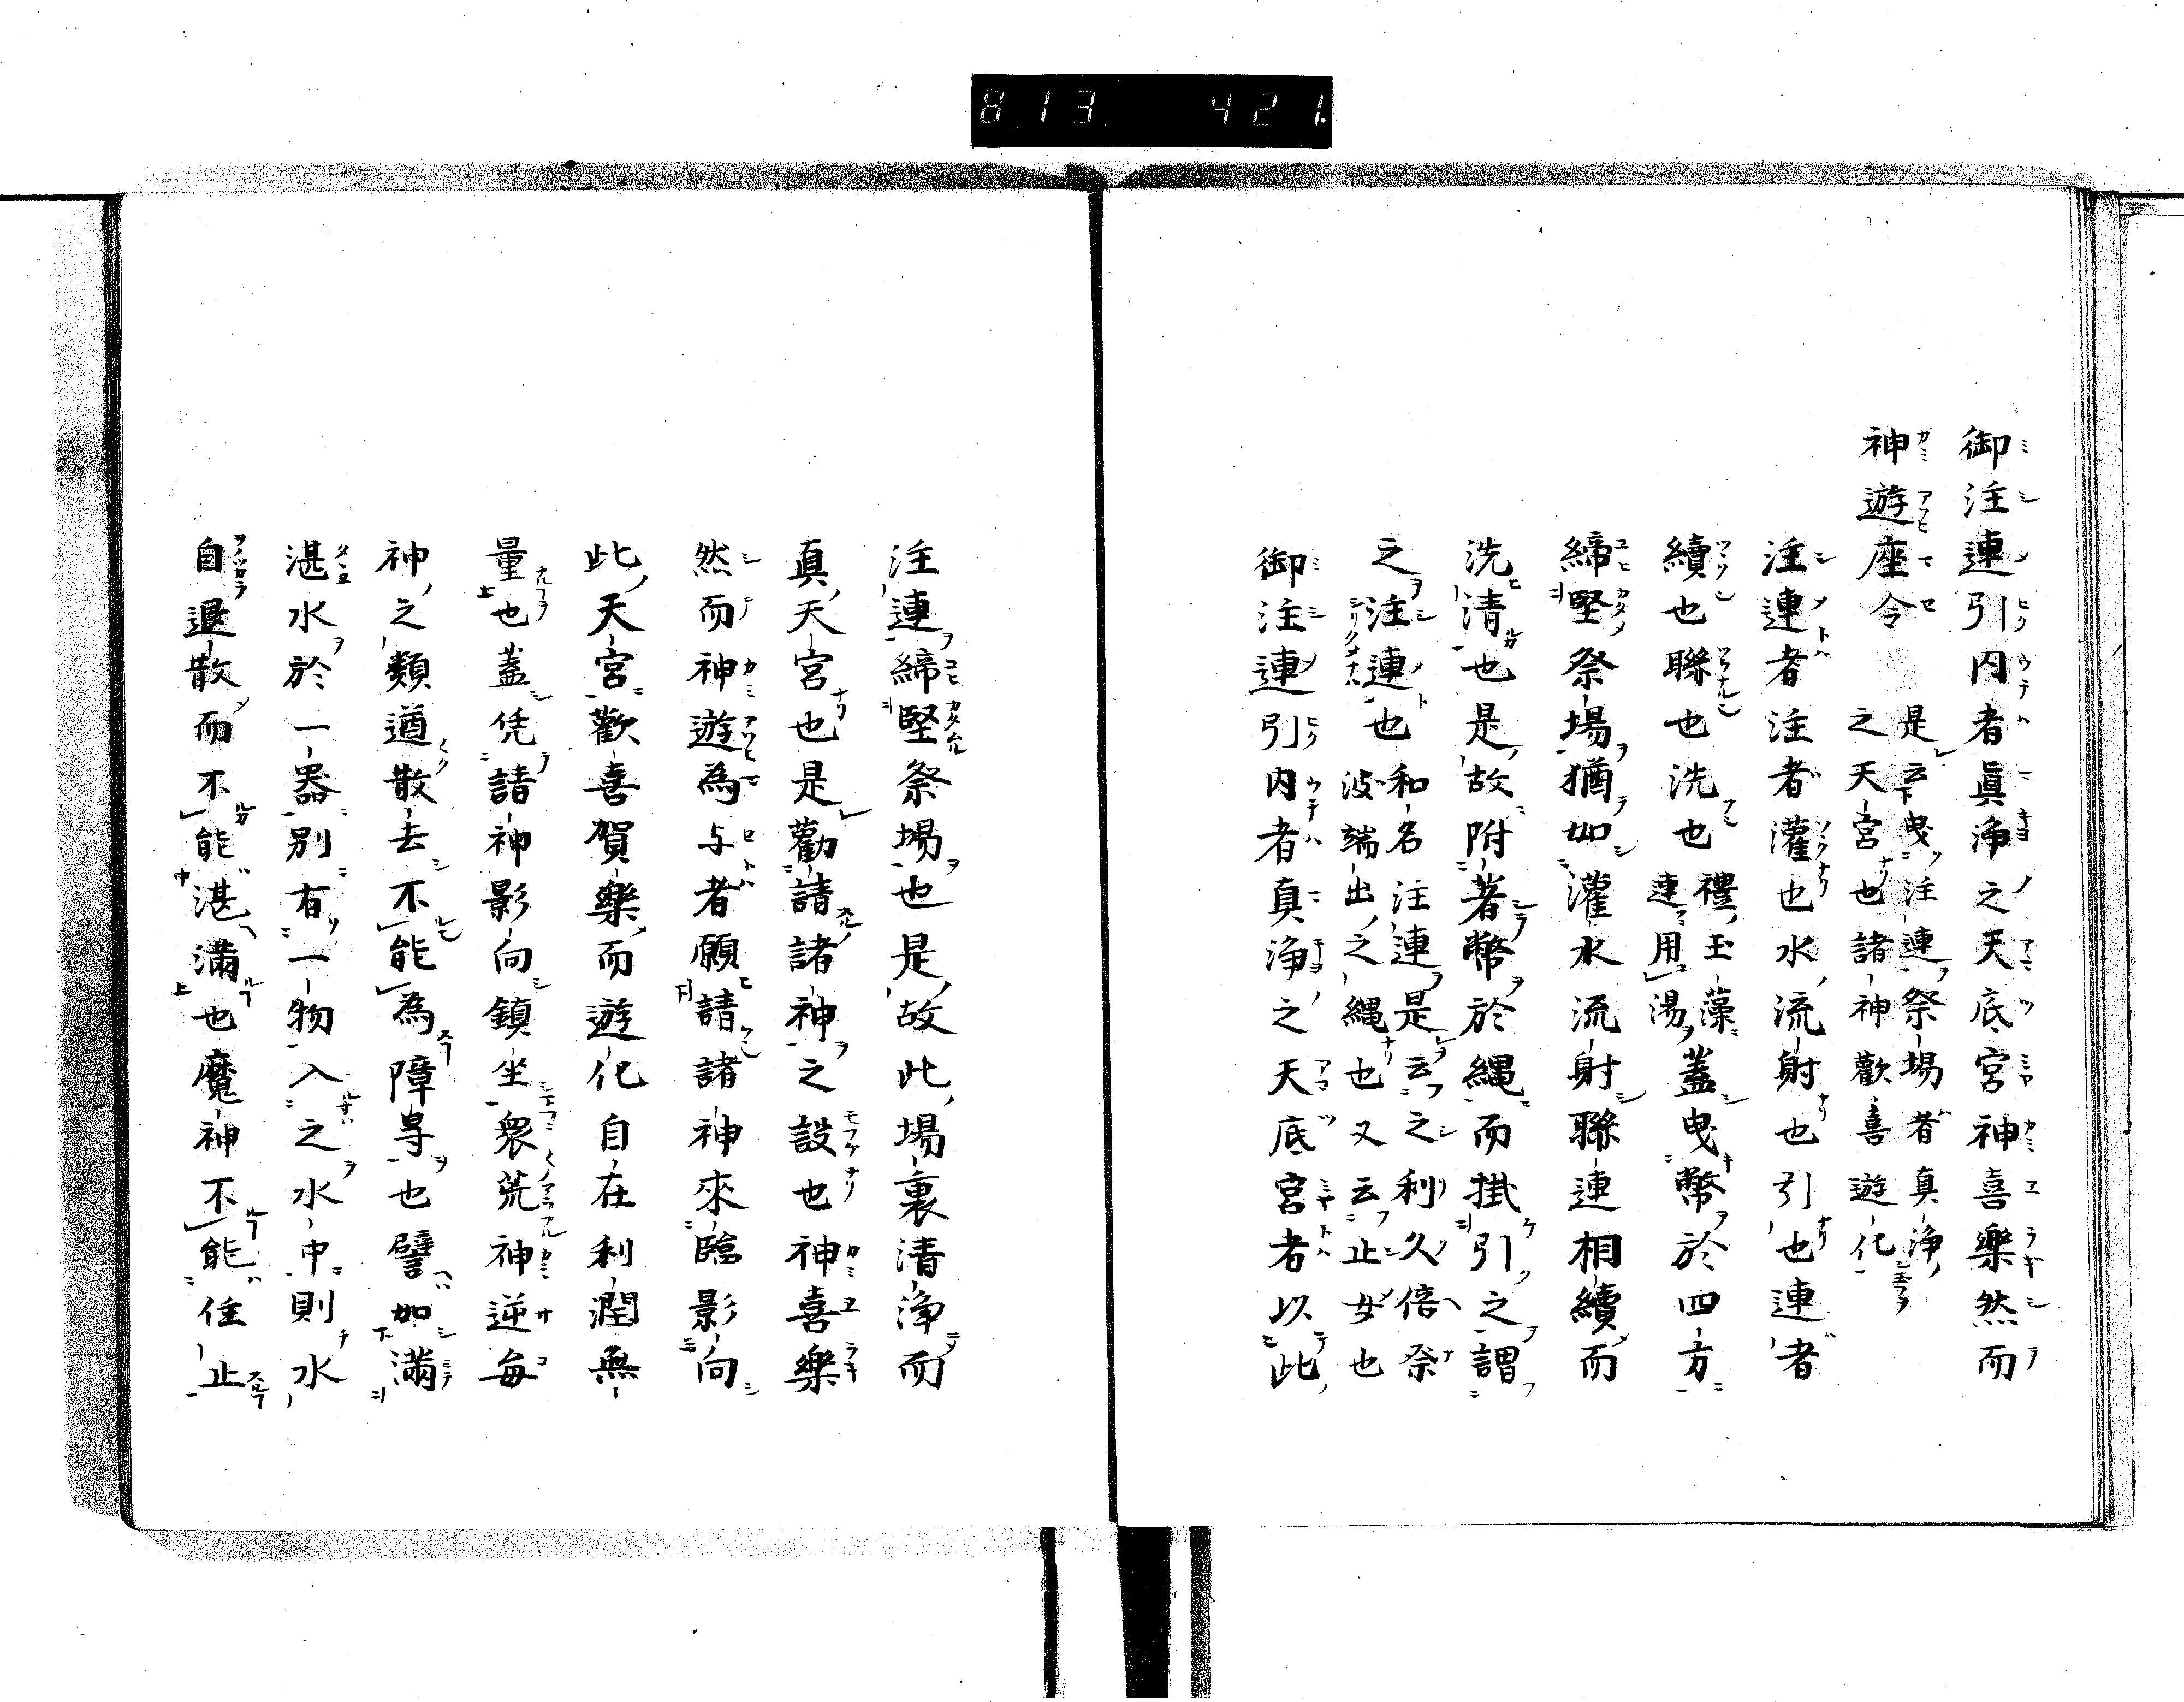 813 421
御注連引内者眞浄之天底宮神喜樂然而
神遊座令
是云曳注連祭場者真浄
之天宮也諸神歡喜遊化
注連者注者灌也水流射也引也連者
續也聯也洗也
禮玉藻
連用湯
蓋曳幣於四方
締堅祭場猶如灌水流射聯連相續而
洗清也是故附著幣於縄而掛引之謂
之注連也
和名注連是云之利久倍奈
波端出之縄也又云止女也
御注連引内者真浄之天底宮者以此
注連締堅祭場也是故此場裏清浄而
真天宮也是勸請諸神之設也神喜樂
然而神遊為与者願請諸神來臨影向
此天宮歡喜賀樂而遊化自在利潤無
量也蓋凭請神影向鎮坐衆荒神逆毎
神之類遁散去不能為障㝵也譬如滿
湛水於一器別有一物入之水中則水
自退散而不能湛滿也魔神不能住止